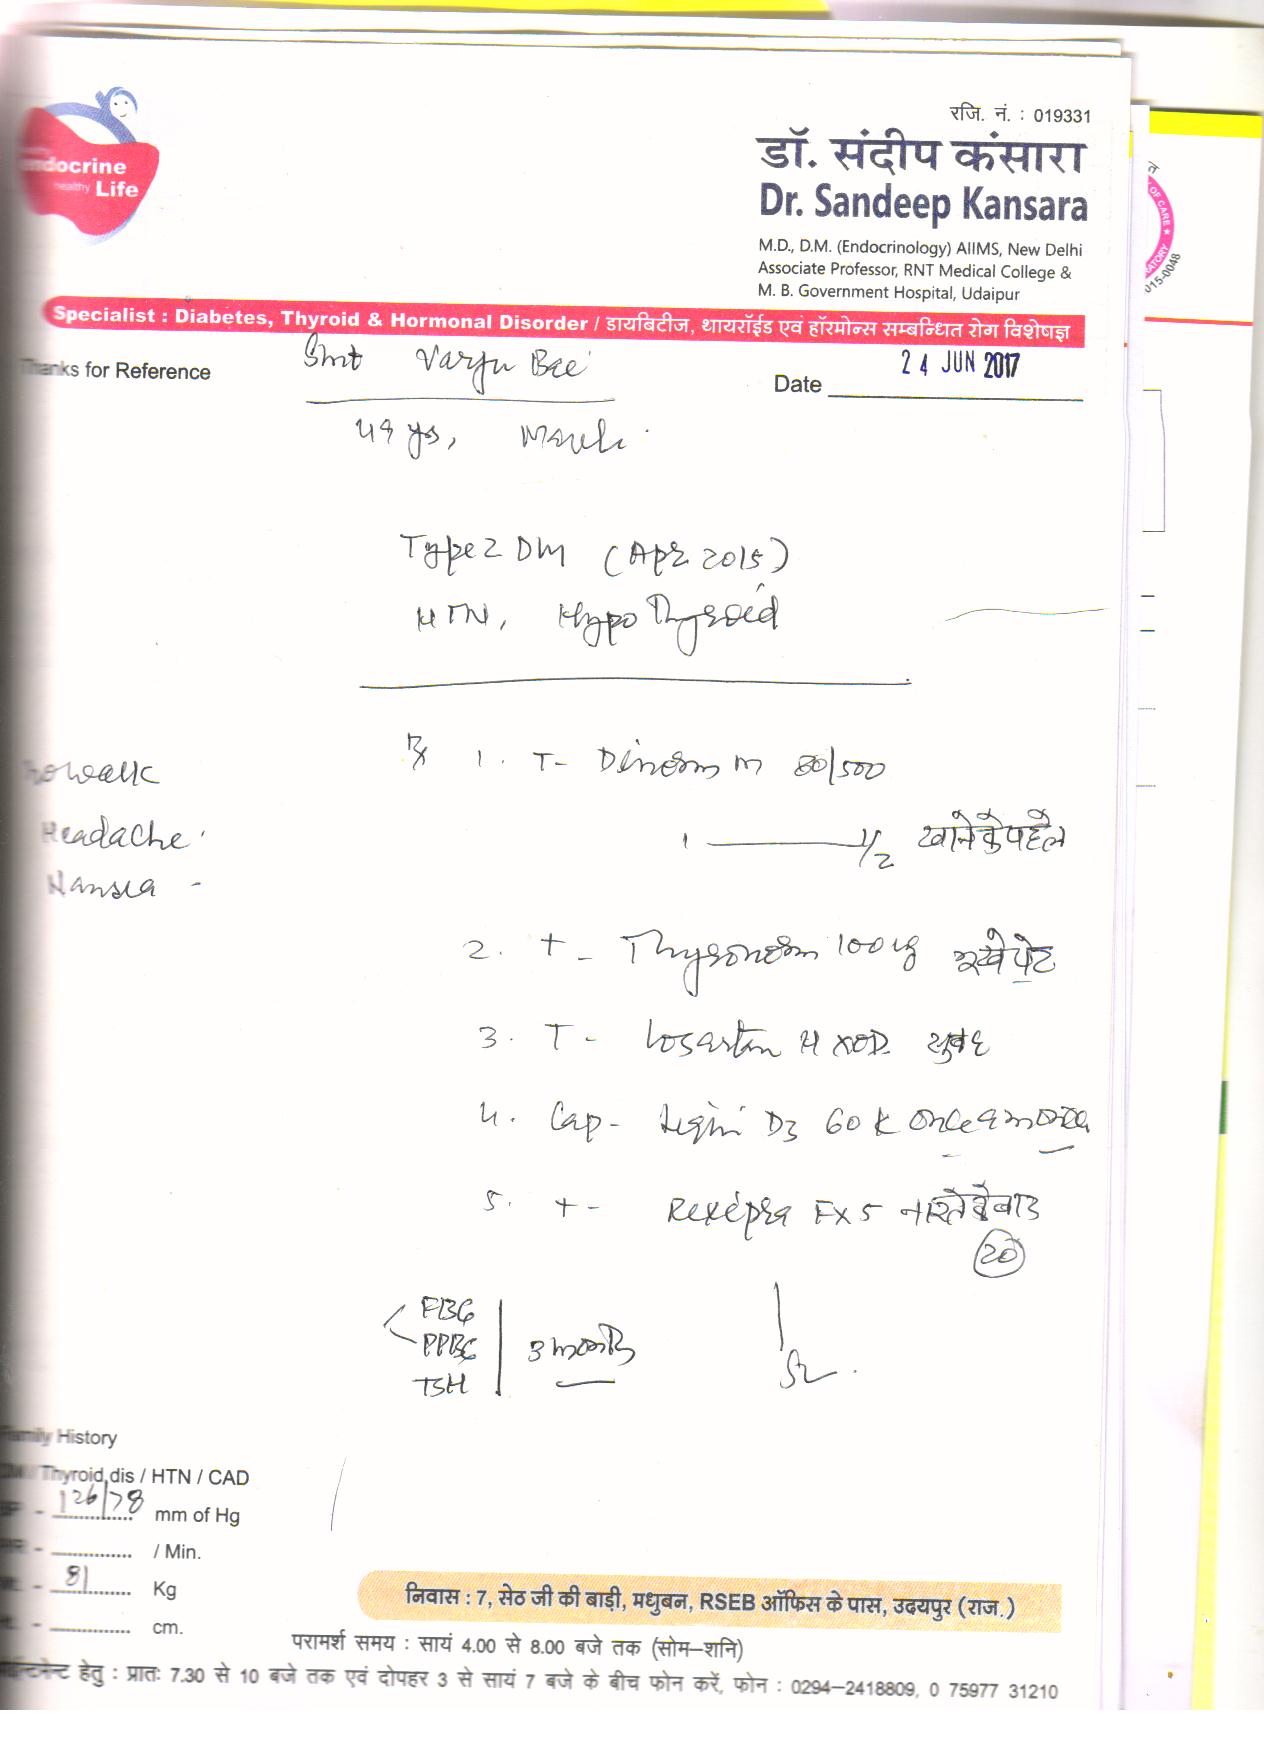 Endocrine
healthy Life
रजि. नं. : 019331
डॉ. संदीप कंसारा
Dr. Sandeep Kansara
M.D., D.M. (Endocrinology) AIIMS, New Delhi
Associate Professor, RNT Medical College &
M. B. Government Hospital, Udaipur
OF CARE
015-0048
Specialist : Diabetes, Thyroid & Hormonal Disorder / डायबिटीज, थायरॉईड एवं हॉरमोन्स सम्बन्धित रोग विशेषज्ञ
Thanks for Reference
Smt Varju Bai
Date 24 JUN 2017
49 yrs,
Type 2 DM (Apr 2015)
HTN, Hypothyroid
Rx 1. T- Dinorm M 80/500
1 ——— 1/2 खाने के पहले
Headache
Nausea -
2. T- Thyronorm 100 ug भूखे पेट
3. T- Losartan H x OD सुबह
4. Cap- D3 60 K once a month
5. T- Rexipra FX 5 नाश्ते के बाद
20
FBG
PPBG
TSH
3 months
Family History
DM / Thyroid dis / HTN / CAD
BP - 126/78 mm of Hg
/ Min.
Wt. - 81 Kg
cm.
निवास : 7, सेठ जी की बाड़ी, मधुबन, RSEB ऑफिस के पास, उदयपुर (राज.)
परामर्श समय : सायं 4.00 से 8.00 बजे तक (सोम–शनि)
हेतु : प्रातः 7.30 से 10 बजे तक एवं दोपहर 3 से सायं 7 बजे के बीच फोन करें, फोन : 0294–2418809, 0 75977 31210